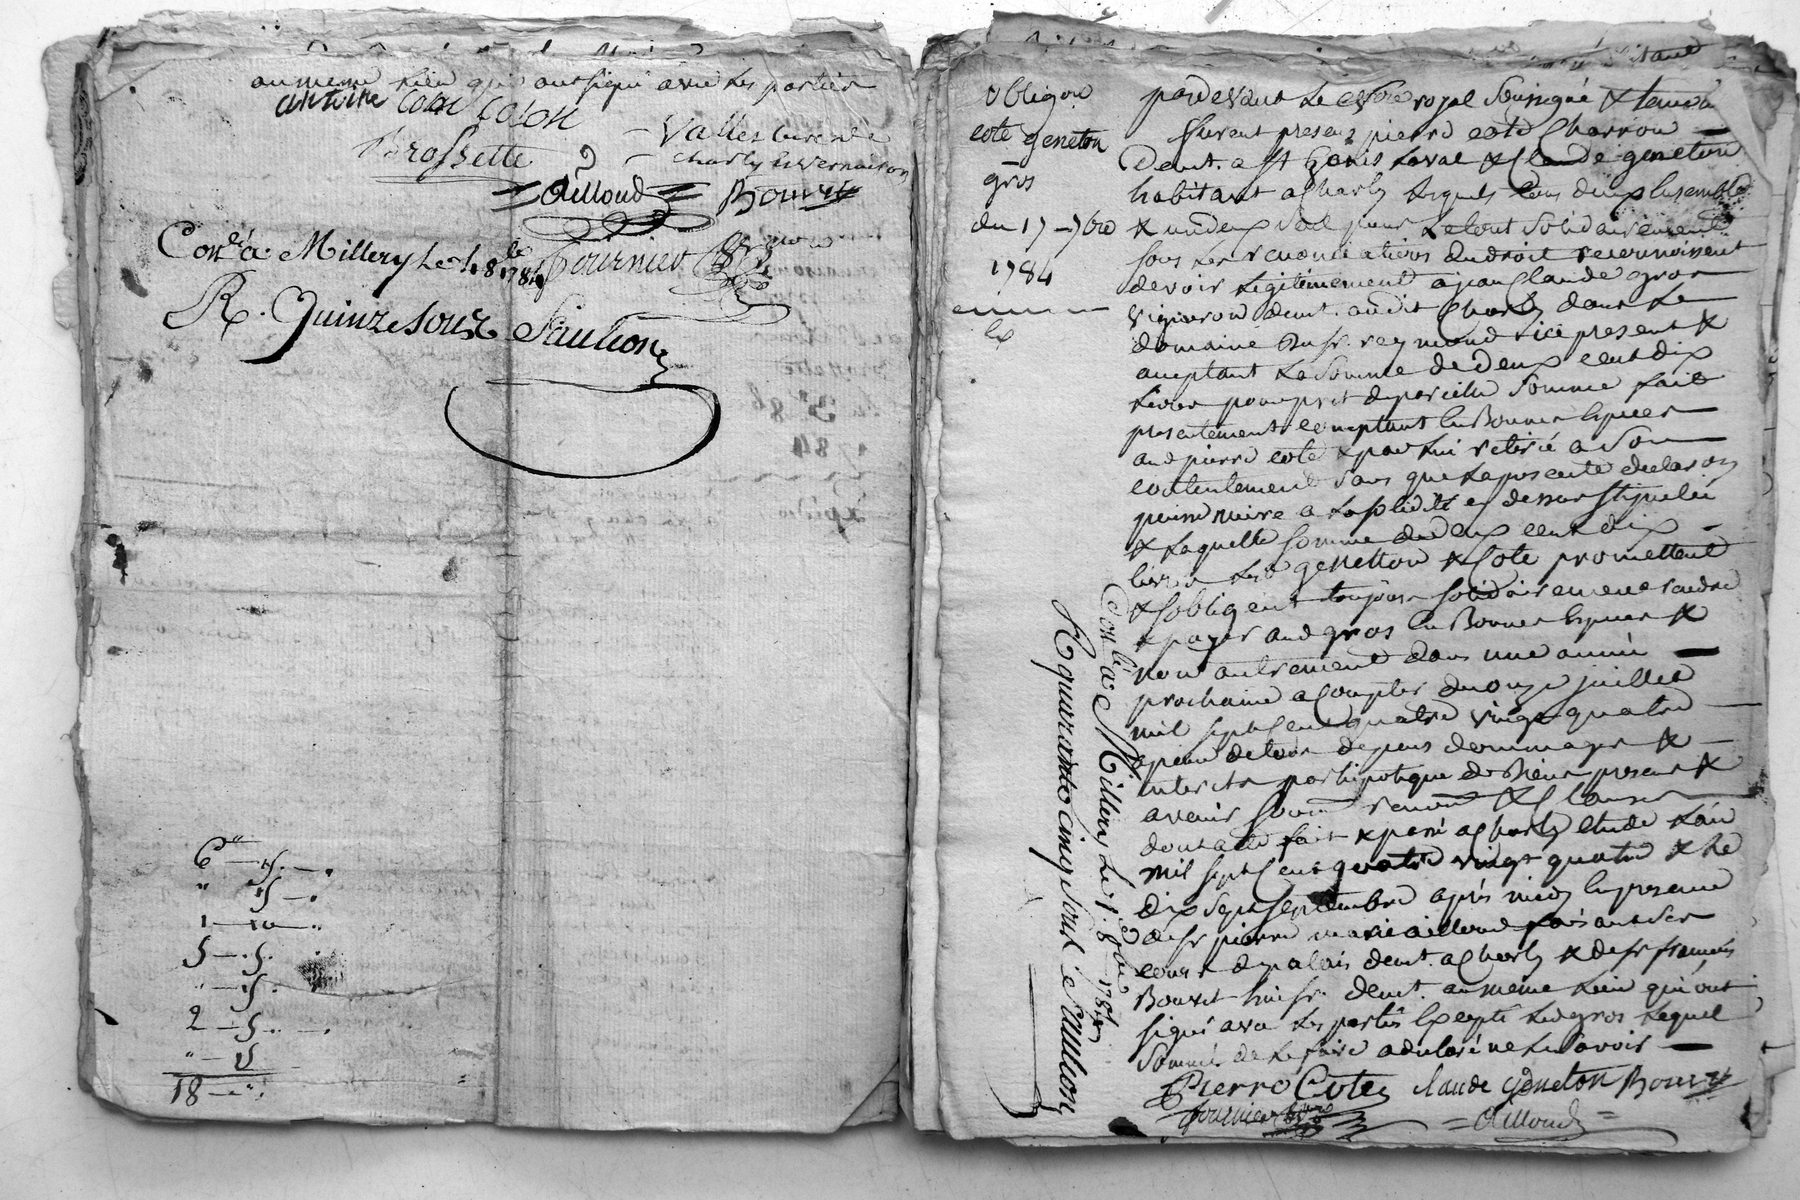 au meme lieu qui ont signé avec les parties
antoine
Brossette
Ailloud Bouvet
Con.lé a Millery le 1. 8.bre 1784 fournier
R. Quinze sous Saulion
6 — 5. — .
" 15 — .
1 — 10 — .
5 — . 5 .
" — 15 .
2 — 5 . — .
" — 15
18 — " .
obligaon
cote geneton
gros
du 17 - 7bre
1784
pardevant le no.re royal soussigné & temoins
furent presens pierre cote Charron
demt. a st Genis laval & Claude geneton
habitant a Charly lesquels tous deux ensemble
& un deux seul pour le tout solidairement
sous les renonciations du droit reconnoissent
devoir legitimement a jean Claude gros
vigneron demt. audit Charly dans le
domaine du sr. reymond ice present &
aceptant la somme de deux cent dix
livres pour pret de pareille somme fait
presentement comptant en Bonnes especes
aud pierre cote & par lui retiré a son
contentement sans que la presente declaraon
puisse nuire a la solidité cy dessus stipulée
& laquelle somme de deux cent dix
livres lesd genetton & Cote promettent
& sobligent toujours solidairement rendre
& payer aud gros en Bonnes especes &
non autrement dans une année
prochaine a Compter du onze juillet
mil sept Cent quatre vingt quatre
a peine de tous depens dommages &
interets par hipoteque de Biens presens &
avenir soum renon & Clauses
dont acte fait & passé a Charly etude l'an
mil sept Cent quatre vingt quatre & le
dix sept septembre après midy en presence
de sr pierre marie ailloud faisant ses
cours de palais demt. a Charly & de sr francois
Bouvet huisr. demt. au meme lieu qui ont
signé avec les parties Excepté led gros lequel
sommé de le faire a declaré ne le savoir
Pierre Cote claude geneton Bouvet
fournier Ailloud
Con.lé a Millery le 1. 8bre 1784
R quarante cinq sous Saulion